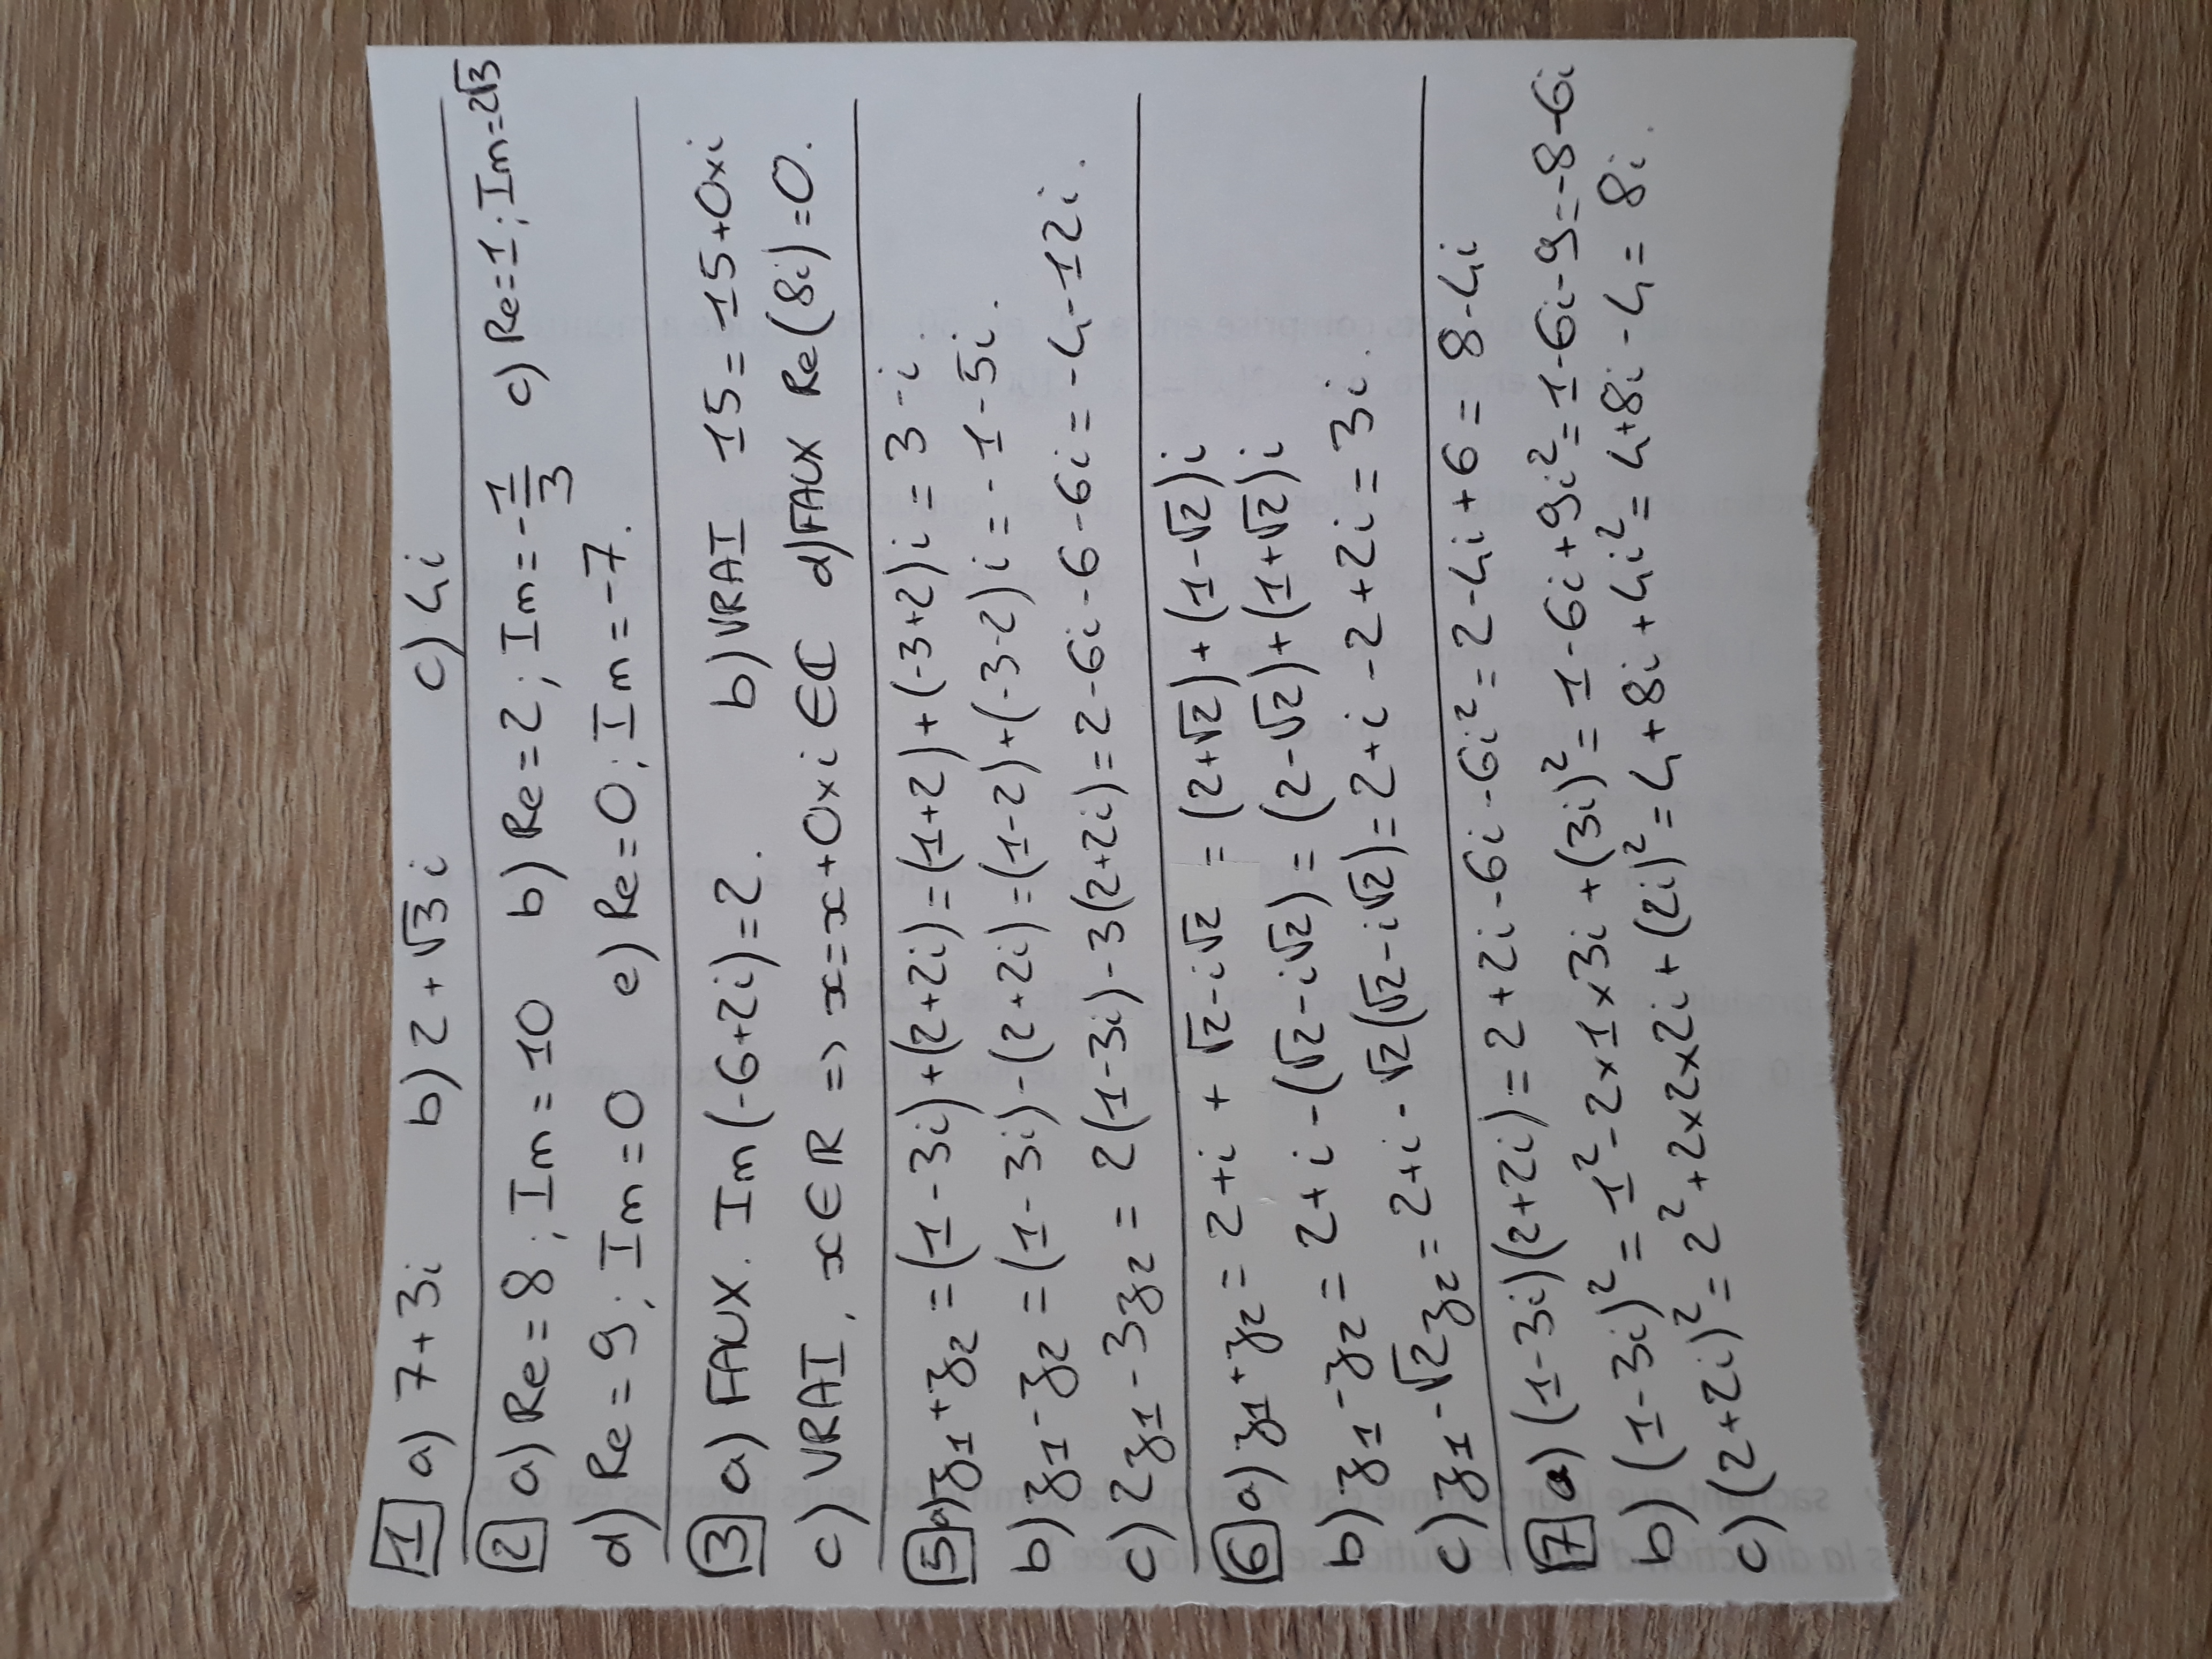 1 a) 7+3i b) 2+√3 i c) 4i
2 a) Re=8 ; Im=10 b) Re=2 ; Im=-1/3 c) Re=1 ; Im=2√3
d) Re=9 ; Im=0 e) Re=0 ; Im=-7.
3 a) FAUX. Im(-6+2i)=2. b) VRAI 15=15+0×i
c) VRAI, x∈ℝ => x=x+0×i∈ℂ d) FAUX Re(8i)=0.
5 a) z₁+z₂=(1-3i)+(2+2i)=(1+2)+(-3+2)i=3-i.
b) z₁-z₂=(1-3i)-(2+2i)=(1-2)+(-3-2)i=-1-5i.
c) 2z₁-3z₂=2(1-3i)-3(2+2i)=2-6i-6-6i=-4-12i.
6 a) z₁+z₂=2+i+√2-i√2=(2+√2)+(1-√2)i
b) z₁-z₂=2+i-(√2-i√2)=(2-√2)+(1+√2)i
c) z₁-√2z₂=2+i-√2(√2-i√2)=2+i-2+2i=3i.
7 a) (1-3i)(2+2i)=2+2i-6i-6i²=2-4i+6=8-4i
b) (1-3i)²=1²-2×1×3i+(3i)²=1-6i+9i²=1-6i-9=-8-6i
c) (2+2i)²=2²+2×2×2i+(2i)²=4+8i+4i²=4+8i-4=8i.